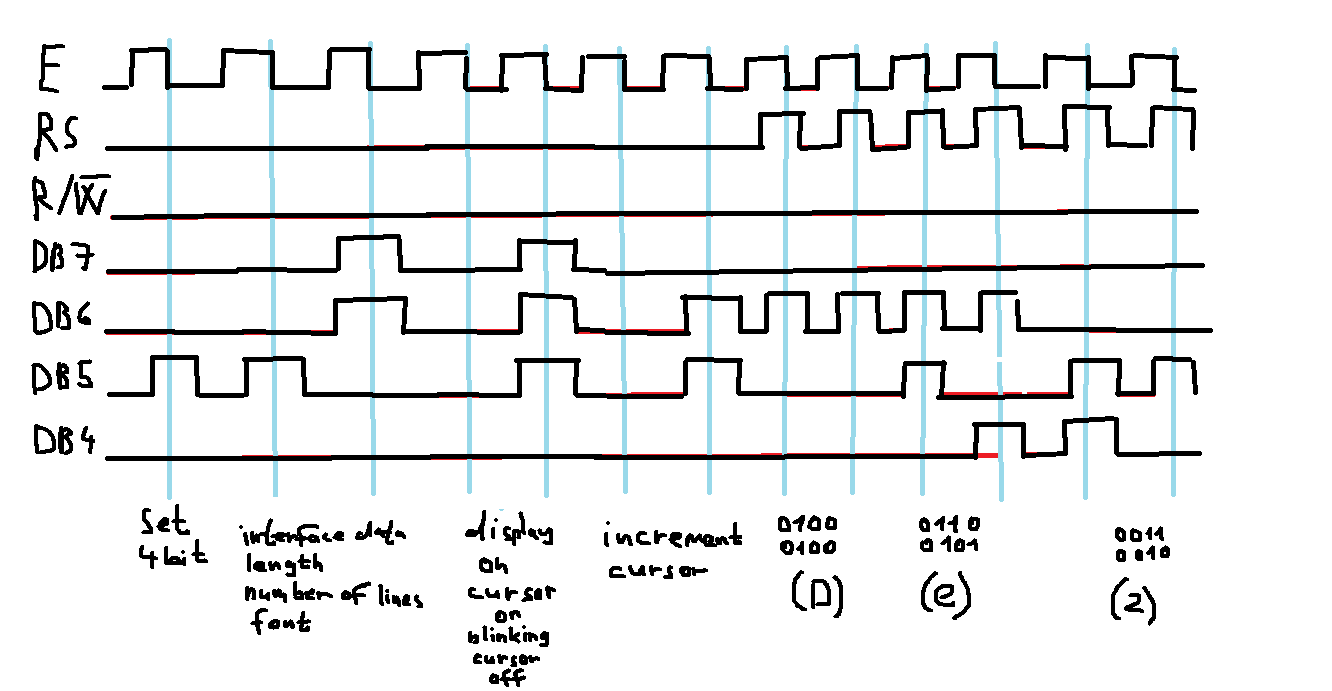 E
RS
R/W̅
DB7
DB6
DB5
DB4
Set
4bit
interface data
length
number of lines
font
display
on
cursor
on
blinking
cursor
off
increment
cursor
0100
0100
(D)
0110
0101
(e)
0011
0010
(2)